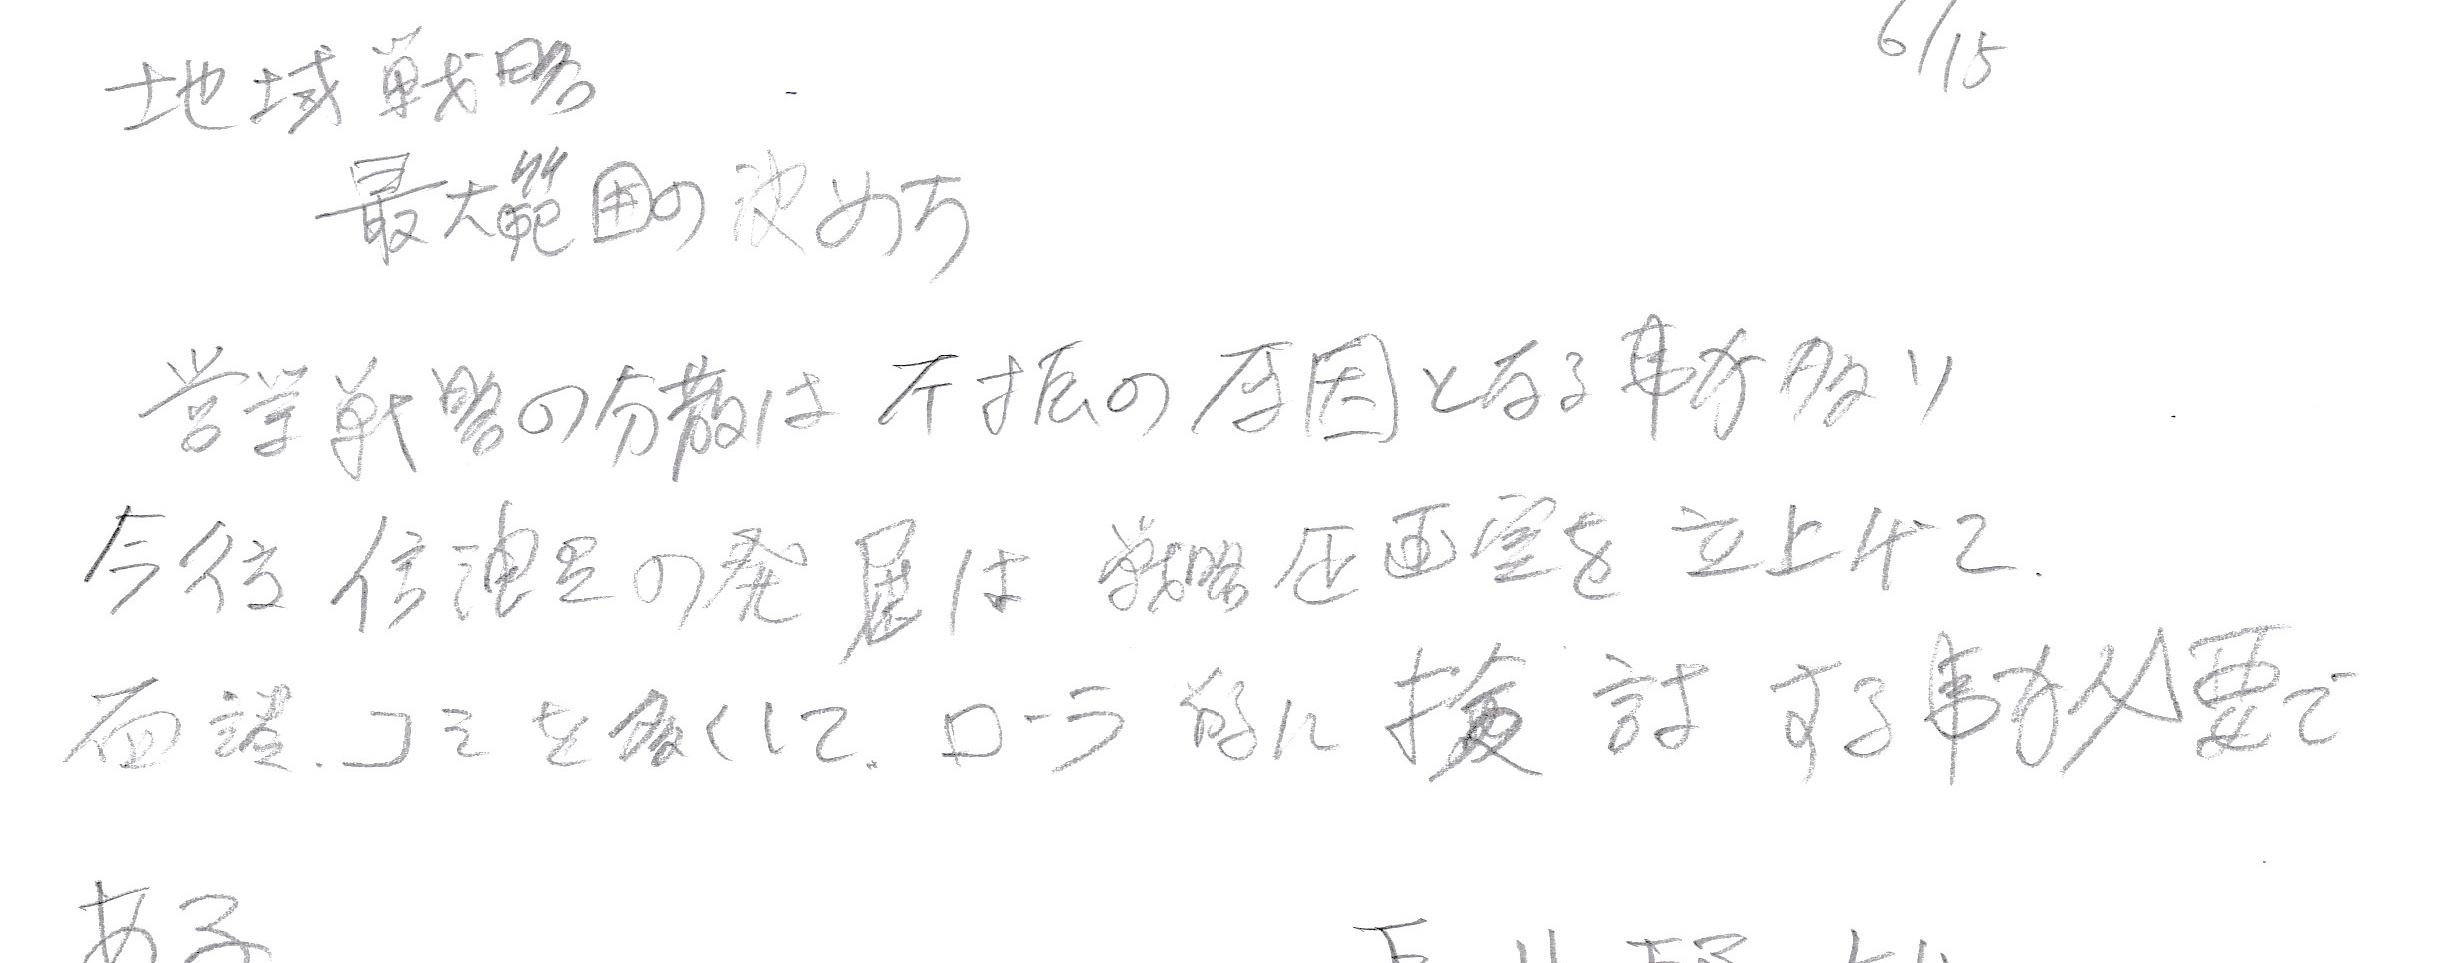 6/15
地域戦略
最大範囲の決め方
営業戦略の分散は不振の原因となる事が多い
今後 の発展は 戦略企画室を立上げて、
面談、コミを多くして、ローラ的に検討する事が必要で
ある